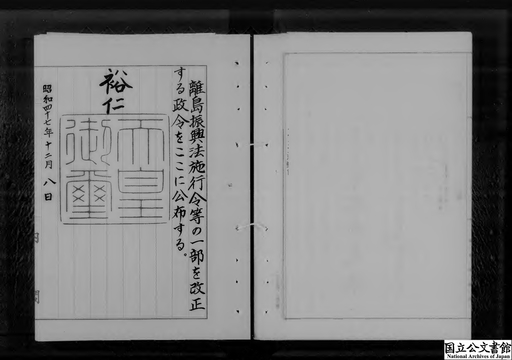 離島振興法施行令等の一部を改正
する政令をここに公布する。
裕仁
天皇
御璽
昭和四十七年十二月八日
国立公文書館
National Archives of Japan